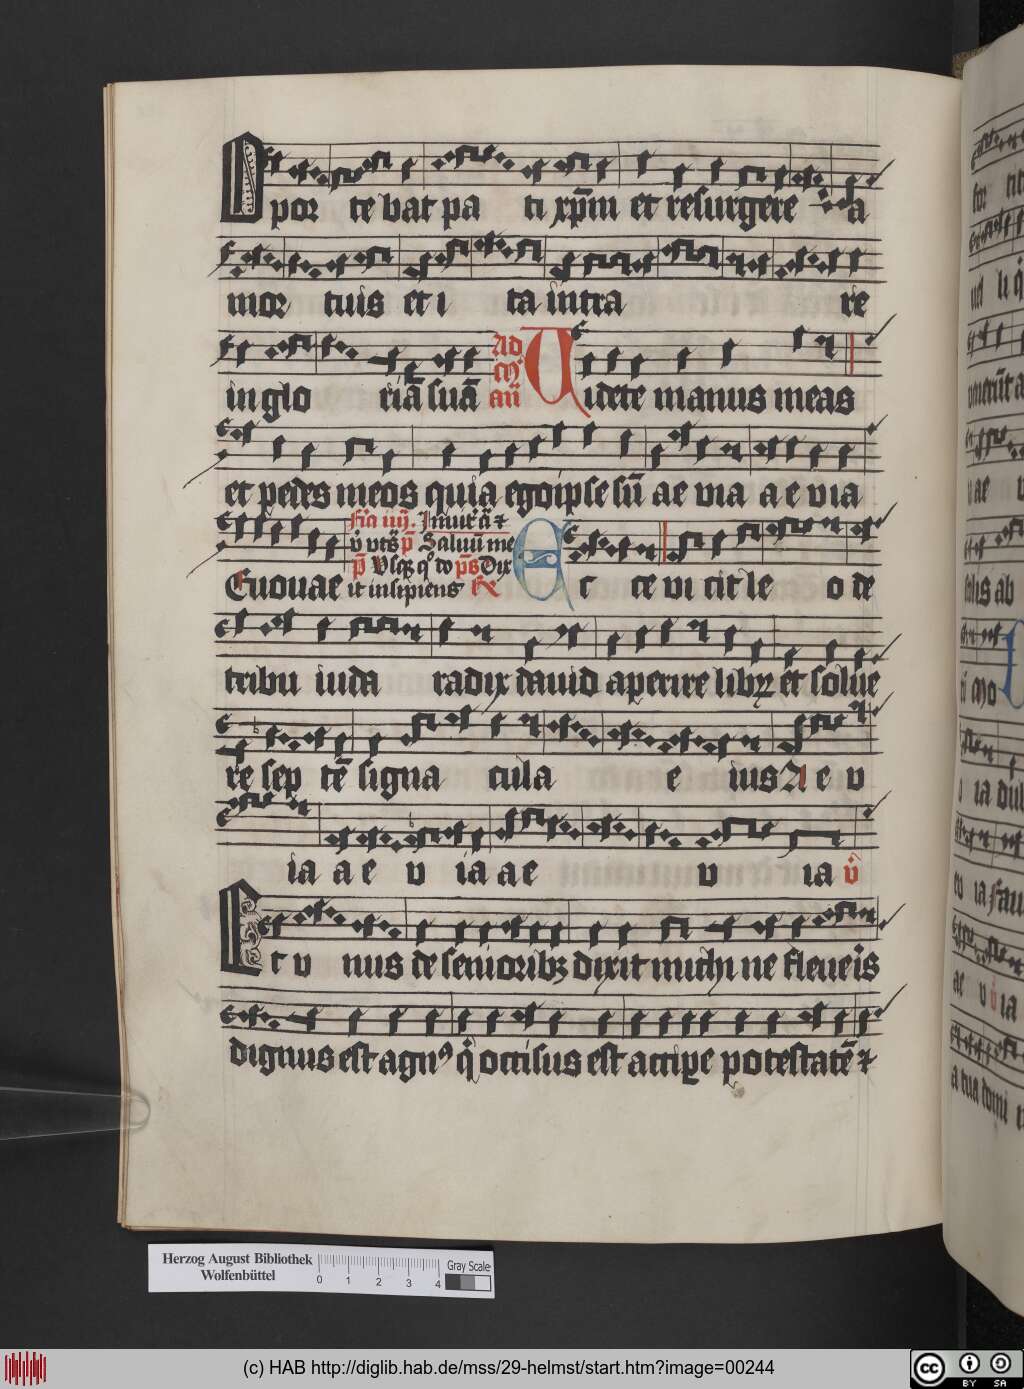 Opor te bat pa ti xp̄m et resurgere a
mor tuis et i ta intra re
in glo riā suā Ad
m̄
an̄ Uidete manus meas
et pedes meos quia ego ipse sū ae via a e via
Euouae
Fīa iiij.
ꝟ vts p̄ Saluū me
p̄s Dix
it insipiens
Ec ce vi cit le o de
tribu iuda radix dauid aperire libꝝ et solue
re sep tē signa cula e ius A e v
ia a e v ia a e v ia ꝟ
Et v nus de senioribꝫ dixit michi ne fleueīs
dignus est agnꝰ q̄ occisus est accipe potestatē ⁊
for tit
uenerūt a
v ae v
solis ab
ri mo
v ia dul
ev ia Fau
ae v ꝟ ia
a tua domi n
Herzog August Bibliothek
Wolfenbüttel
0 1 2 3 4
Gray Scale
(c) HAB http://diglib.hab.de/mss/29-helmst/start.htm?image=00244
cc BY SA